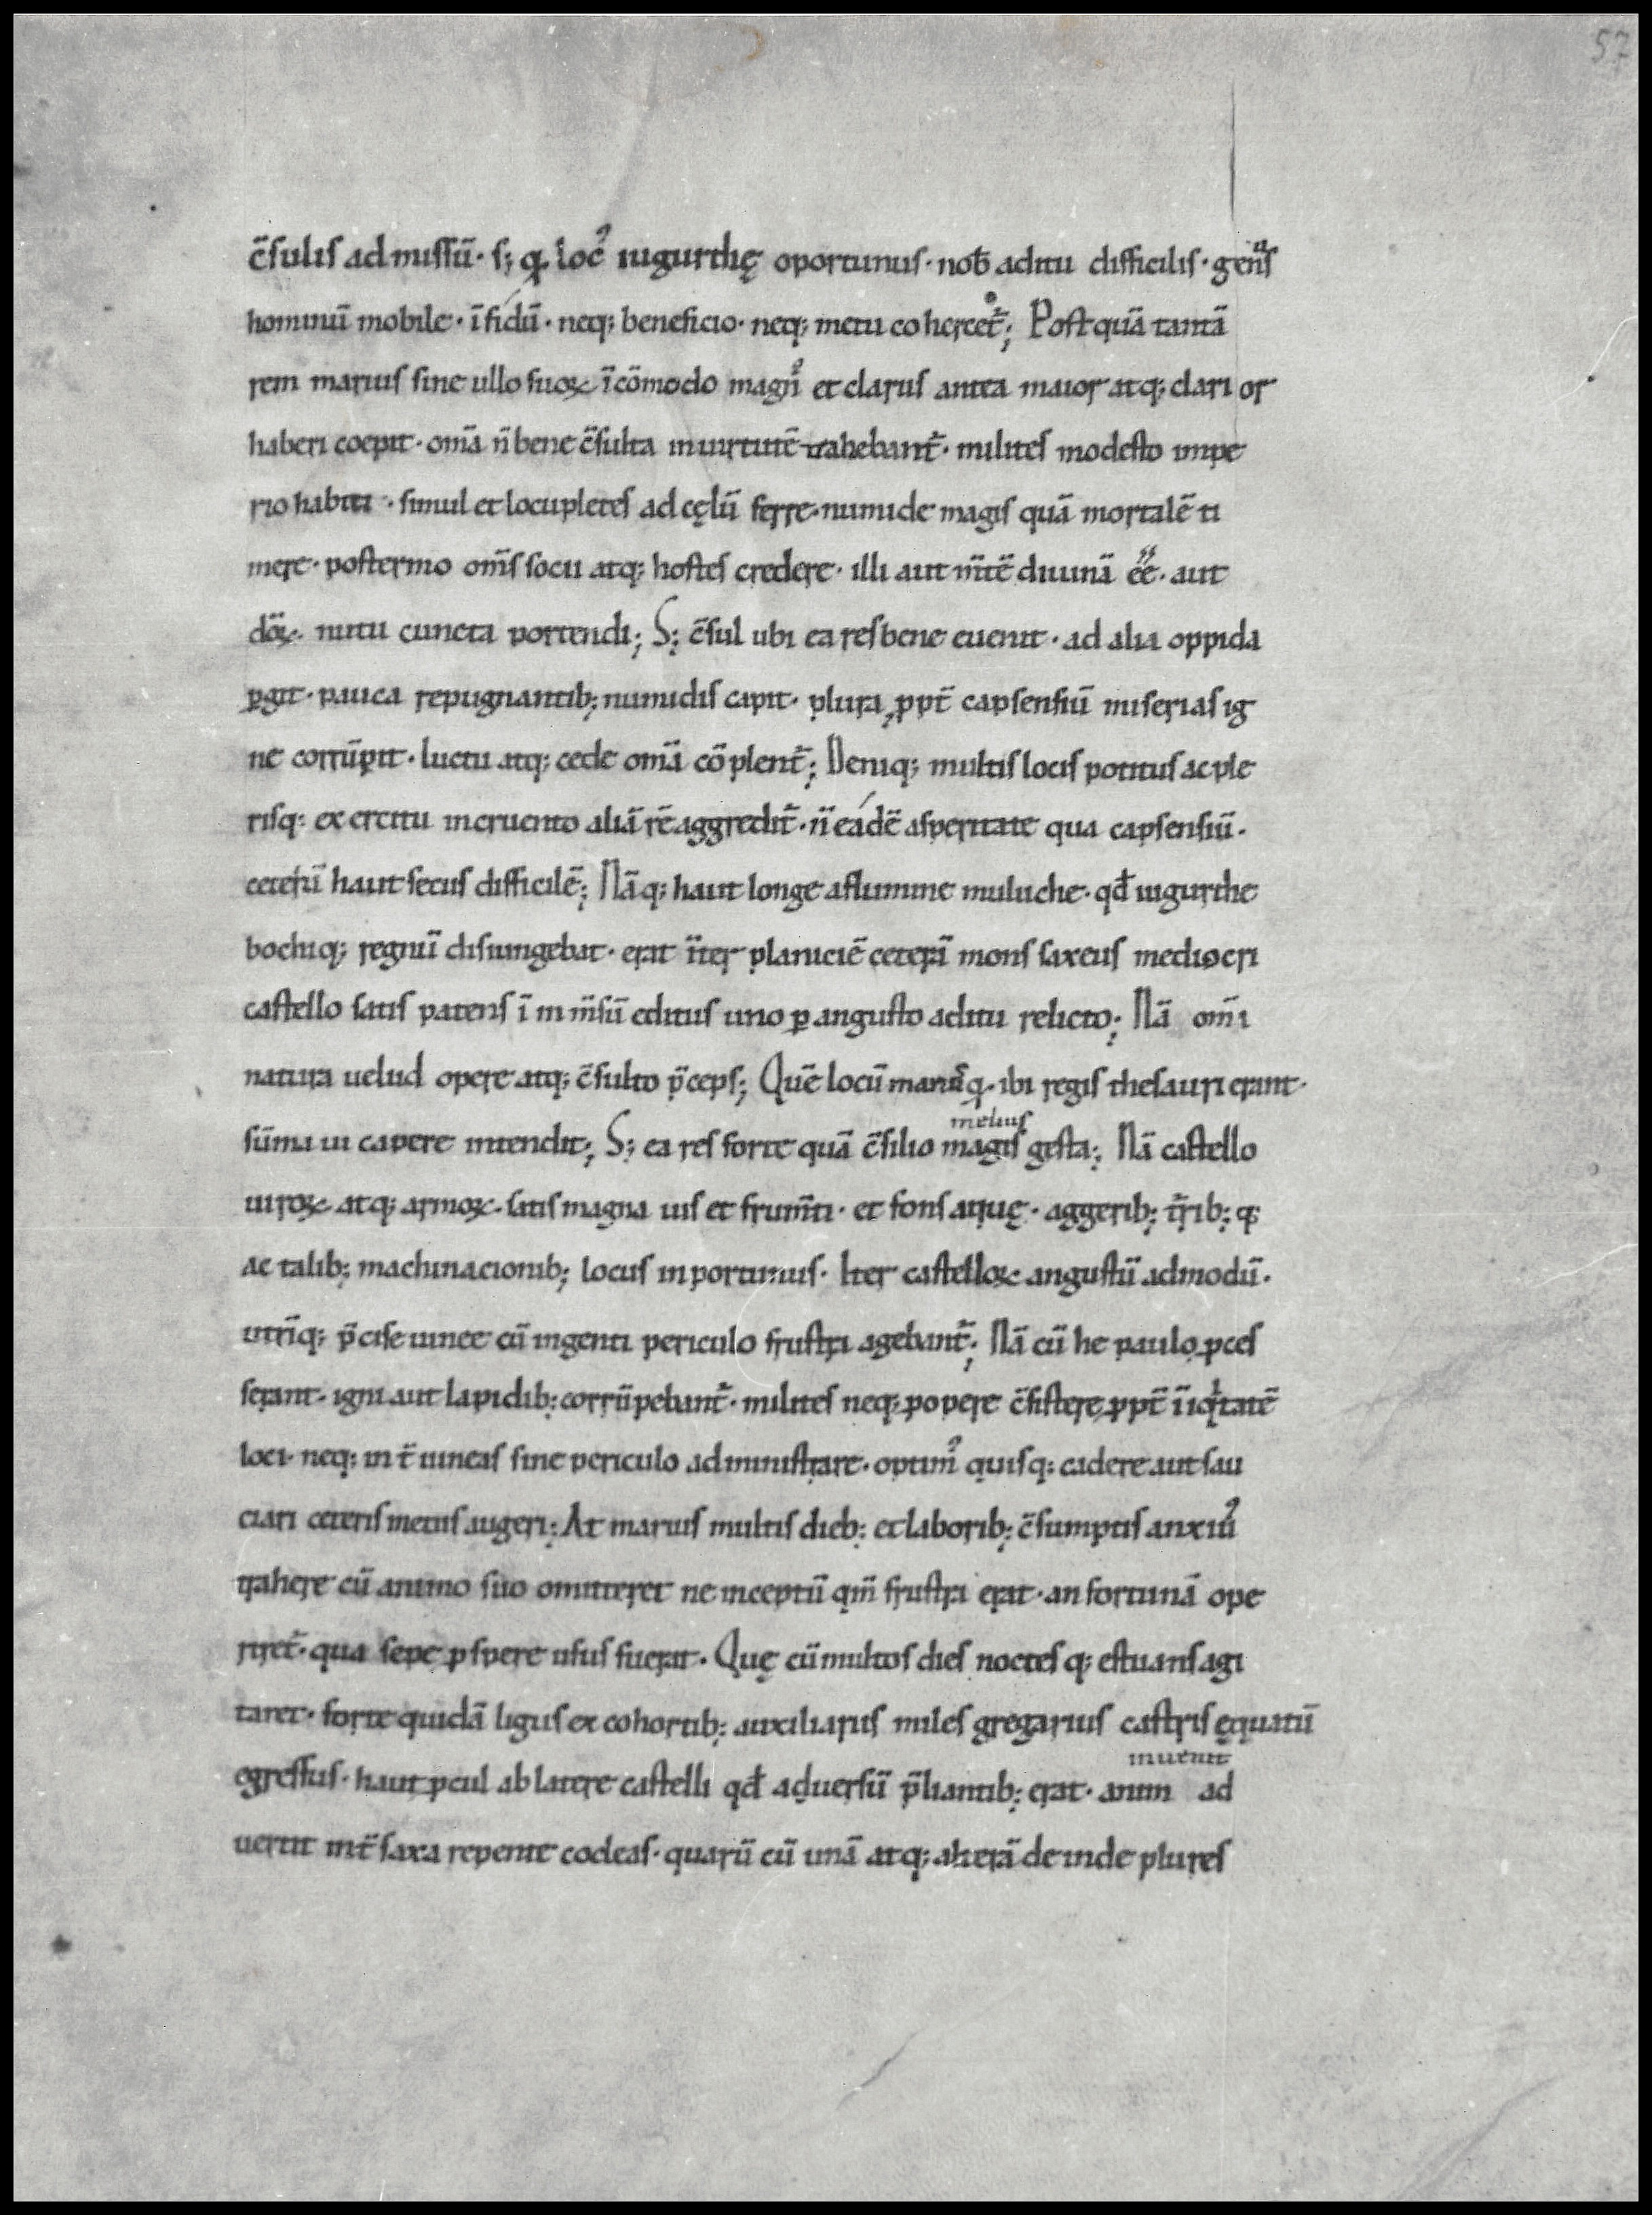 57
c̄sulis admissū· s; q̣ loc᾿ iugurthę oportunus· nob̄ aditu difficilis· gen̄s
hominū mobile· īfidū· neq; beneficio· neq; metu cohercet̄; Postquā tantā
rem marius sine ullo suoꝝ īcōmodo magn᾿ et clarus antea maior atq; clarior
haberi coepit· om̄a n̄ bene c̄sulta in uirtutē trahebant̄· milites modesto impe
rio habiti· simul et locupletes ad cęlū ferre· numide magis quā mortalē ti
mere· postermo om̄s socii atq; hostes credere· illi aut m̄tē diuinā eē· aut
dōꝝ nutu cuncta portendi; S; c̄sul ubi ea res bene euenit· ad alia oppida
ꝑgit· pauca repugnantib; numidis capit· plura ꝓpt̄ capsensiū miserias ig
ne corrūpit· luctu atq; cede om̄a cōplent̄; Deniq; multis locis potitus ac ple
risq; exercitu incruento aliā rē aggredit̄· n̄ eádē asperitate qua capsensiū·
ceterū haut secus difficilē; Nāq; haut longe a flumine muluche· qđ iugurthe
bochiq; regnū disiungebat· erat īter planiciē ceterā mons saxeus mediocri
castello satis patens ī in m̄sū editus uno ꝑangusto aditu relicto; Nā om̄i
natura uelud opere atq; c̄sulto p̄ceps; Quē locū marius q̣· ibi regis thesauri erant·
sūma ui capere intendit; S; ea res forte quā c̄silio magis gesta; Nā castello
melius
uiroꝝ atq; armoꝝ· satis magna uis et frum̄ti· et fons aquę· aggerib; t̄rib; q;
ac talib; machinacionib; locus inportunus· Iter castelloꝝ angustū admodū·
utrīq; p̄cise uinee cū ingenti periculo frustra agebant̄; Nā cū he paulo ꝓces
serant· igni aut lapidib; corrūpebant̄· milites neq; ꝓ opere c̄sistere ꝓpt̄ īiq̄tatē
loci· neq; int̄ uineas sine periculo administrare· optim᾿ quisq; cadere aut sau
ciari ceteris metus augeri; At marius multis dieb; et laborib; c̄sumptis anxiu᾿
trahere cū animo suo omitteret ne inceptū qm̄ frustra erat· an fortunā ope
riret̄· qua sepe ꝓspere usus fuerat· Quę cū multos dies noctesq; estuans agi
taret· forte quidā ligus ex cohortib; auxiliarus miles gregarius castris ęquatū
egressus· haut ꝓcul ab latere castelli qđ aduersū p̄liantib; erat· anim ad
inuenit
uertit int̄ saxa repente cocleas· quarū cū unā atq; alterā deinde plures